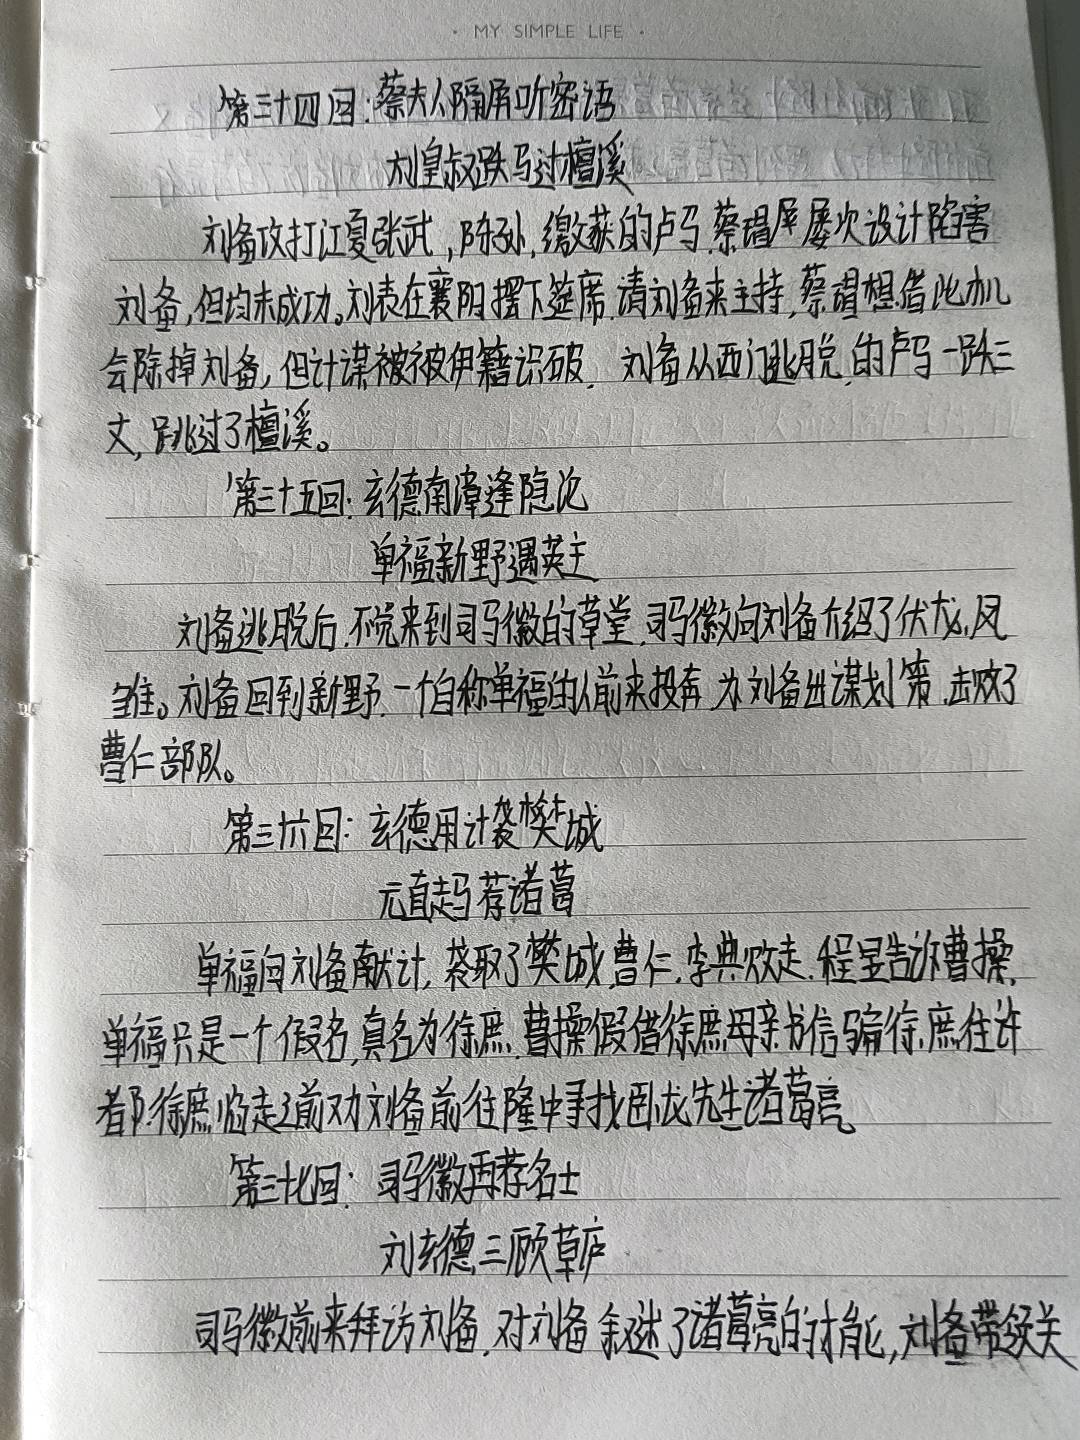 · MY SIMPLE LIFE ·
第三十四回:蔡夫人隔屏听密语
刘皇叔跃马过檀溪
刘备攻打江夏张武,陈孙,缴获的卢马.蔡瑁屡次设计陷害
刘备,但均未成功。刘表在襄阳摆下筵席.请刘备来主持,蔡瑁想借此机
会除掉刘备,但计谋被被伊籍识破. 刘备从西门逃脱,的卢马一跃三
丈,跳过了檀溪。
第三十五回:玄德南漳逢隐沦
单福新野遇英主
刘备逃脱后.不觉来到司马徽的草堂.司马徽向刘备介绍了伏龙、凤
雏。刘备回到新野.一个自称单福的人前来投奔.为刘备出谋划策.击败了
曹仁部队。
第三十六回:玄德用计袭樊城
元直走马荐诸葛
单福向刘备献计,袭取了樊城,曹仁.李典败走.程昱告诉曹操,
单福只是一个假名,真名为徐庶.曹操假借徐庶母亲书信骗徐庶往许
都.徐庶临走之前劝刘备前往隆中寻找卧龙先生诸葛亮
第三十七回:司马徽再荐名士
刘玄德三顾草庐
司马徽前来拜访刘备,对刘备叙述了诸葛亮的才能,刘备带领关